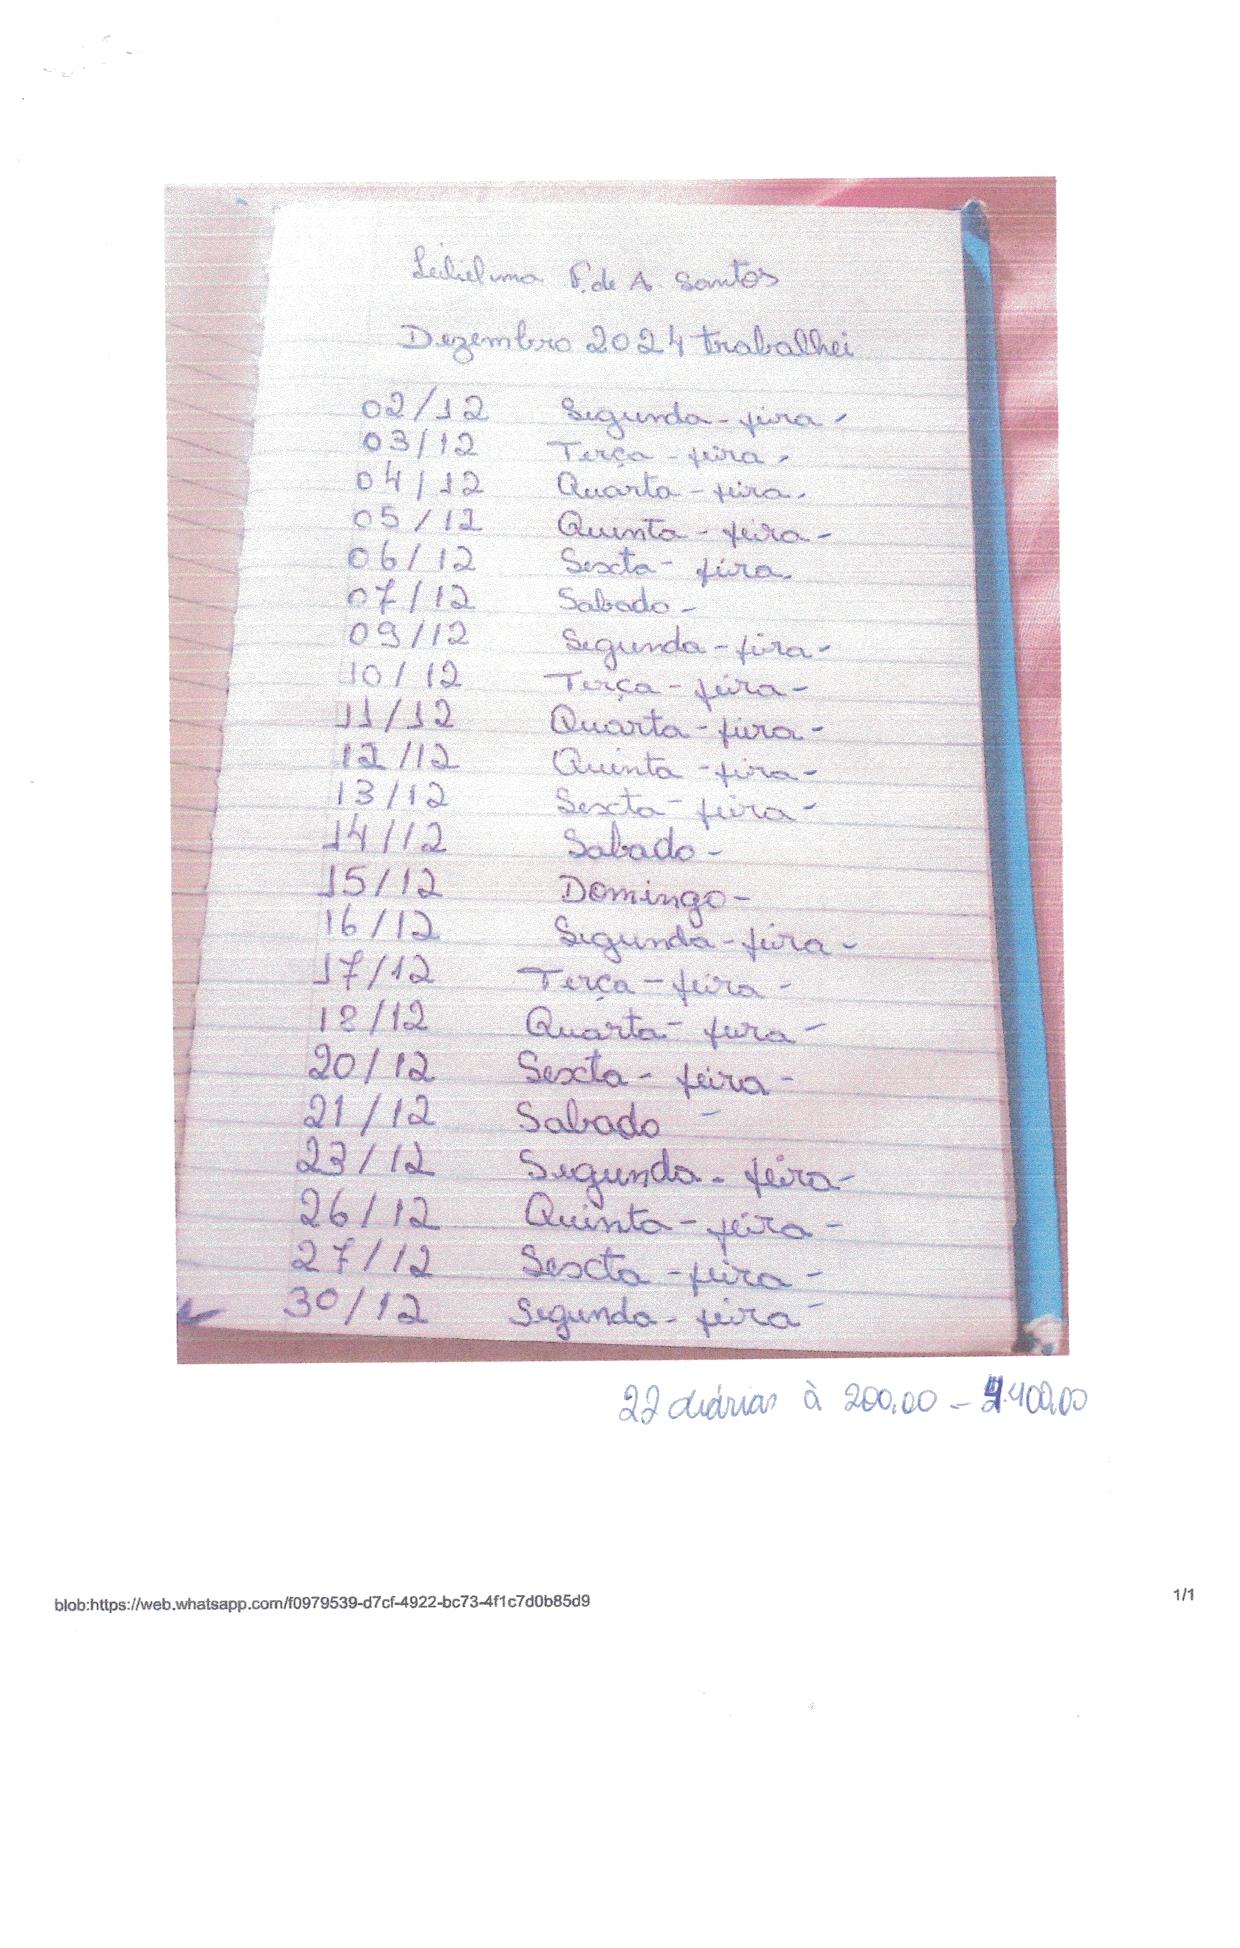 P. de A. Santos
Dezembro 2024 trabalhei
02/12 Segunda-feira-
03/12 Terça-feira-
04/12 Quarta-feira-
05/12 Quinta-feira-
06/12 Sexta-feira-
07/12 Sabado-
09/12 Segunda-feira-
10/12 Terça-feira-
11/12 Quarta-feira-
12/12 Quinta-feira-
13/12 Sexta-feira-
14/12 Sabado-
15/12 Domingo-
16/12 Segunda-feira-
17/12 Terça-feira-
18/12 Quarta-feira-
20/12 Sexta-feira-
21/12 Sabado-
23/12 Segunda-feira-
26/12 Quinta-feira-
27/12 Sexta-feira-
30/12 Segunda-feira-
22 diárias à 200,00 - 4.400,00
blob:https://web.whatsapp.com/f0979539-d7cf-4922-bc73-4f1c7d0b85d9
1/1